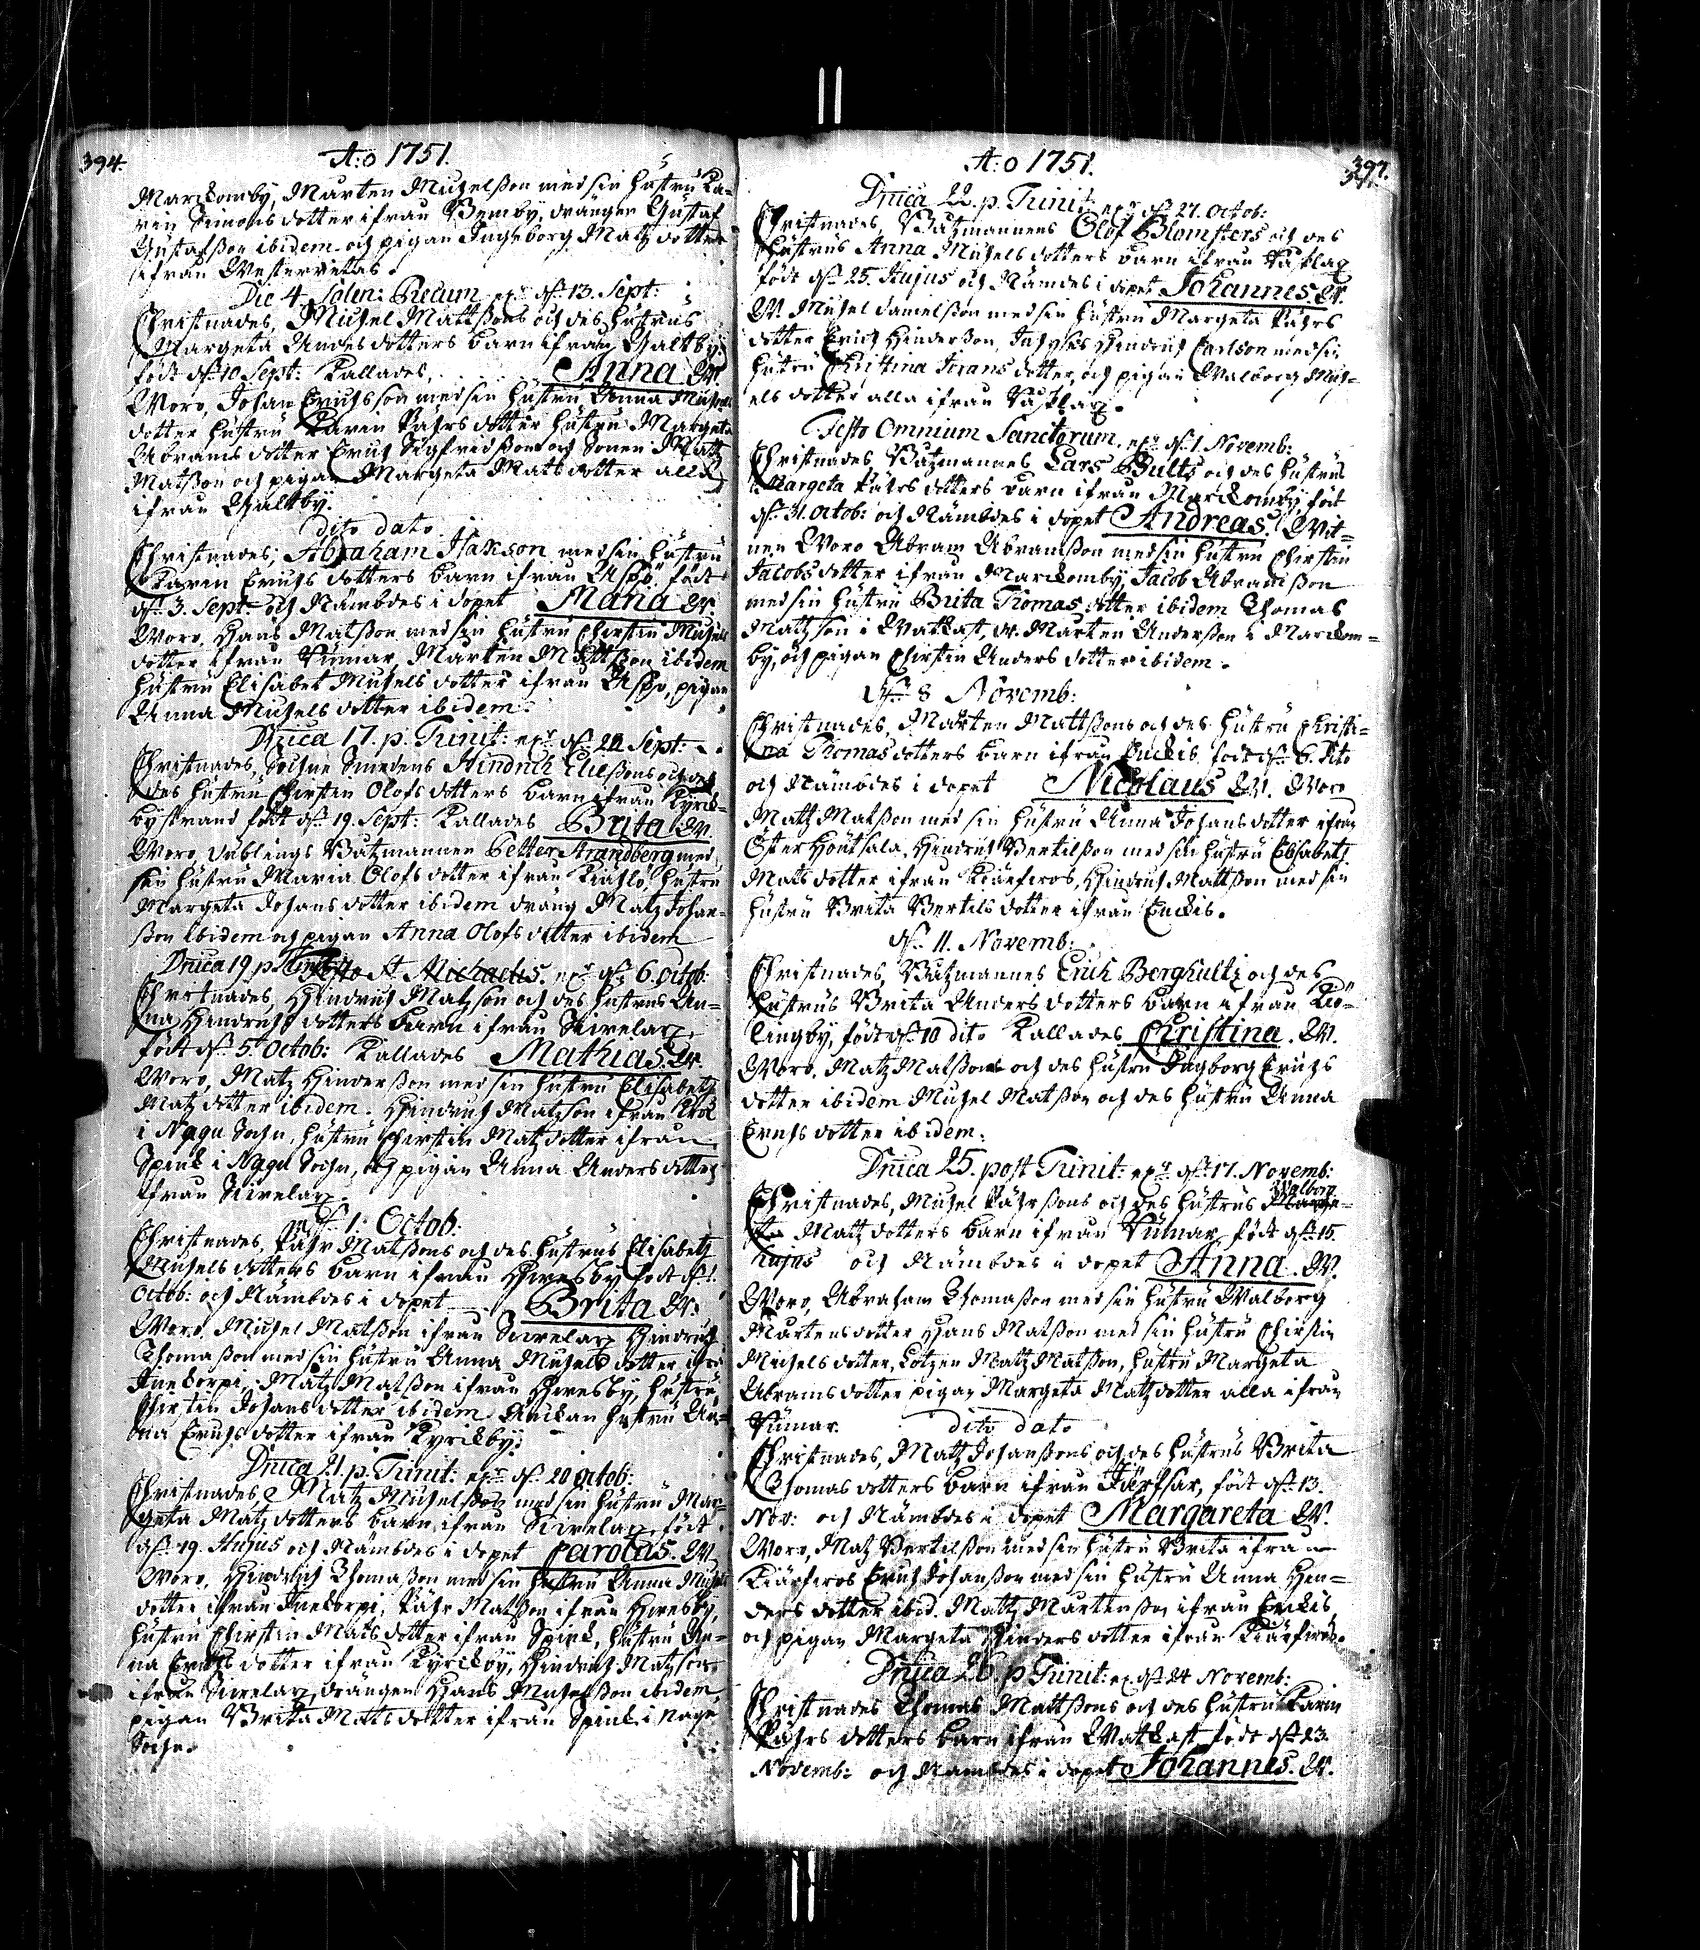 394.
A:o 1751.
Marckomby, Mårten Michelsson med sin hustru Ca-
rin Simons dotter ifrån Bemby, drängen Gustaf
Gustafsson ibidem och pigan Ingeborg Matz dotter
ifrån Westervettas.
Die 4. Solen: Precum d. 13. Sept:
Christnades, Michel Mattsons och des hustrus
Margeta Anders dotters barn ifrån Galtby
födt d. 10 Sept: Kallades, Anna W.
Woro, Johan Erichsson med sin hustru Anna Michels
dotter hustru Karin Pährs dotter hustru Margeta
Abrams dotter Erich Sigfredsson och Sonen Matz
Matsson och pigan Margeta Mats dotter alla
ifrån Galtby.
dito dato
Christnades, Abraham Isacson med sin hustru
Karin Erichs dotters barn ifrån födt
d. 3. Sept: och Nämbdes i dopet Maria W.
Woro, Hans Matsson med sin hustru Chirstin Michels
dotter ifrån Rumar, Mårten Mattsson ibidem
hustru Elisabet Michels dotter ifrån pigan
Anna Michels dotter ibidem.
Dnica 17. p. Trinit: d. 22 Sept:
Christnades, Sochne Smedens Hindrich Eliessons och
des hustru Chirstin Olofs dotters barn ifrån Kyrck-
bystrand födt d. 19. Sept: Kallades Brita W.
Woro, Båtzmannen Petter Strandberg med
sin hustru Maria Olofs dotter ifrån hustru
Margeta Johans dotter ibidem dräng Matz Johan-
sson ibidem och pigan Anna Olofs dotter ibidem
Dnica 19 p. Trinit: Festo St Michaelis. d. 6. Octob:
Christnades, Hindrich Matzson och des hustrus An-
na Hindrichs dotters barn ifrån
födt d. 5. Octob: Kallades Mathias. W.
Woro, Matz Hindersson med sin hustru Elisabeth
Matz dotter ibidem. Hindrich Matzson ifrån
i Nagu Sochn, hustru Chirstin Matz dotter ifrån
Spink i Nagu Sochn, och pigan Anna Anders dotter
ifrån
d. 1. Octob:
Christnades, Pähr Matssons och des hustrus Elisabeth
Michels dotters barn ifrån födt d. 1.
Octob: och Nämbdes i dopet Brita W.
Woro, Michel Matsson ifrån Hindrich
Thomasson med sin hustru Anna Michels dotter ifrån
Matz Matsson ifrån hustru
Chirstin Johans dotter ibidem hustru An-
na Erichs dotter ifrån Kyrckby.
Dnica 21 p. Trinit: d. 20 Octob:
Christnades, Matz Michelsson med sin hustru Mar-
geta Matz dotters barn ifrån födt
d. 19. Hujus och Nämbdes i dopet Carolus. W.
Woro, Hindrich Thomasson med sin hustru Anna Michels
dotter ifrån Pähr Matsson ifrån
hustru Chirstin Mats dotter ifrån Spink, hustru An-
na Erichs dotter ifrån Kyrckby, Hindrich Matzson
ifrån drängen Hans Michelsson ibidem
pigan Brita Mats dotter ifrån Spink i Nagu
Sochn.
397.
A:o 1751.
Dnica 22. p. Trinit: d. 27. Octob:
Christnades, Båtzmannens Olof Blomsters och des
hustrus Anna Michels dotters barn ifrån
födt d. 25. Hujus och Nämdes i dopet Johannes. W.
W. Michel Danielsson med sin hustru Margeta Pährs
dotter Erich Hindersson, Hindrich Carlson med sin
hustru Christina Frans dotter, och pigan Walborg Mich-
els dotter alla ifrån
Festo Omnium Sanctorum, d. 1 Novemb:
Christnades Båtzmannes Lars Bults och des hustrus
Margeta Pährs dotters barn ifrån Marckomby, födt
d. 31. Octob: och Nämbdes i dopet Andreas. Wit-
nen Woro Abram Abramsson med sin hustru Chirstin
Jacobs dotter ifrån Marckomby, Jacob Abramsson
med sin hustru Brita Thomas dotter ibidem Thomas
Matzson i Watkast, dr. Mårten Andersson i Marckom-
by, och pigan Chirstin Anders dotter ibidem.
d. 8 Novemb:
Christnades, Mårten Mattssons och des hustru Christi-
na Thomas dotters barn ifrån Enckis födt d. 6. dito
och Nämbdes i dopet Nicolaus W. Woro
Matz Matsson med sin hustru Anna Johans dotter ifrån
Öster Hindrich Bertilsson med sin hustru Elisabeth
Mats dotter ifrån Hindrich Mattsson med sin
hustru Brita Bertils dotter ifrån Enckis.
d. 11. Novemb:
Christnades, Båtzmannes Erich Berghultz och des
hustrus Brita Anders dotters barn ifrån
lingby, födt d. 10 dito Kallades Christina. W.
Woro. Matz Matssons och des hustru Ingborg Erichs
dotter ibidem Michel Matsson och des hustru Anna
Erichs dotter ibidem.
Dnica 25. post Trinit: d. 17. Novemb:
Christnades, Michel Pährssons och des hustrus Walborg
Matz dotters barn ifrån Rumar, födt d. 15.
hujus och Nämbdes i dopet Anna. W.
Woro, Abraham Thomasson med sin hustru Walborg
Mårtens dotter Hans Matsson med sin hustru Chirstin
Michels dotter, Lotzen Matz Matsson, hustru Margeta
Abrams dotter pigan Margeta Matz dotter alla ifrån
Rumar. dito dato
Christnades, Matz Johanssons och des hustrus Brita
Thomas dotters barn ifrån födt d. 13.
Nov: och Nämbdes i dopet Margareta W.
Woro, Matz Bertilsson med sin hustru Brita ifrån
Erich Johansson med sin hustru Anna Hin-
ders dotter ibid. Mattz Mårtensson ifrån Enckis
och pigan Margeta Hinders dotter ifrån
Dnica 26. p Trinit: d. 24 Novemb:
Christnades Thomas Mattssons och des hustru Karin
Pährs dotters barn ifrån Watkast födt d. 23.
Novemb: och Nämbdes i dopet Johannes. W.